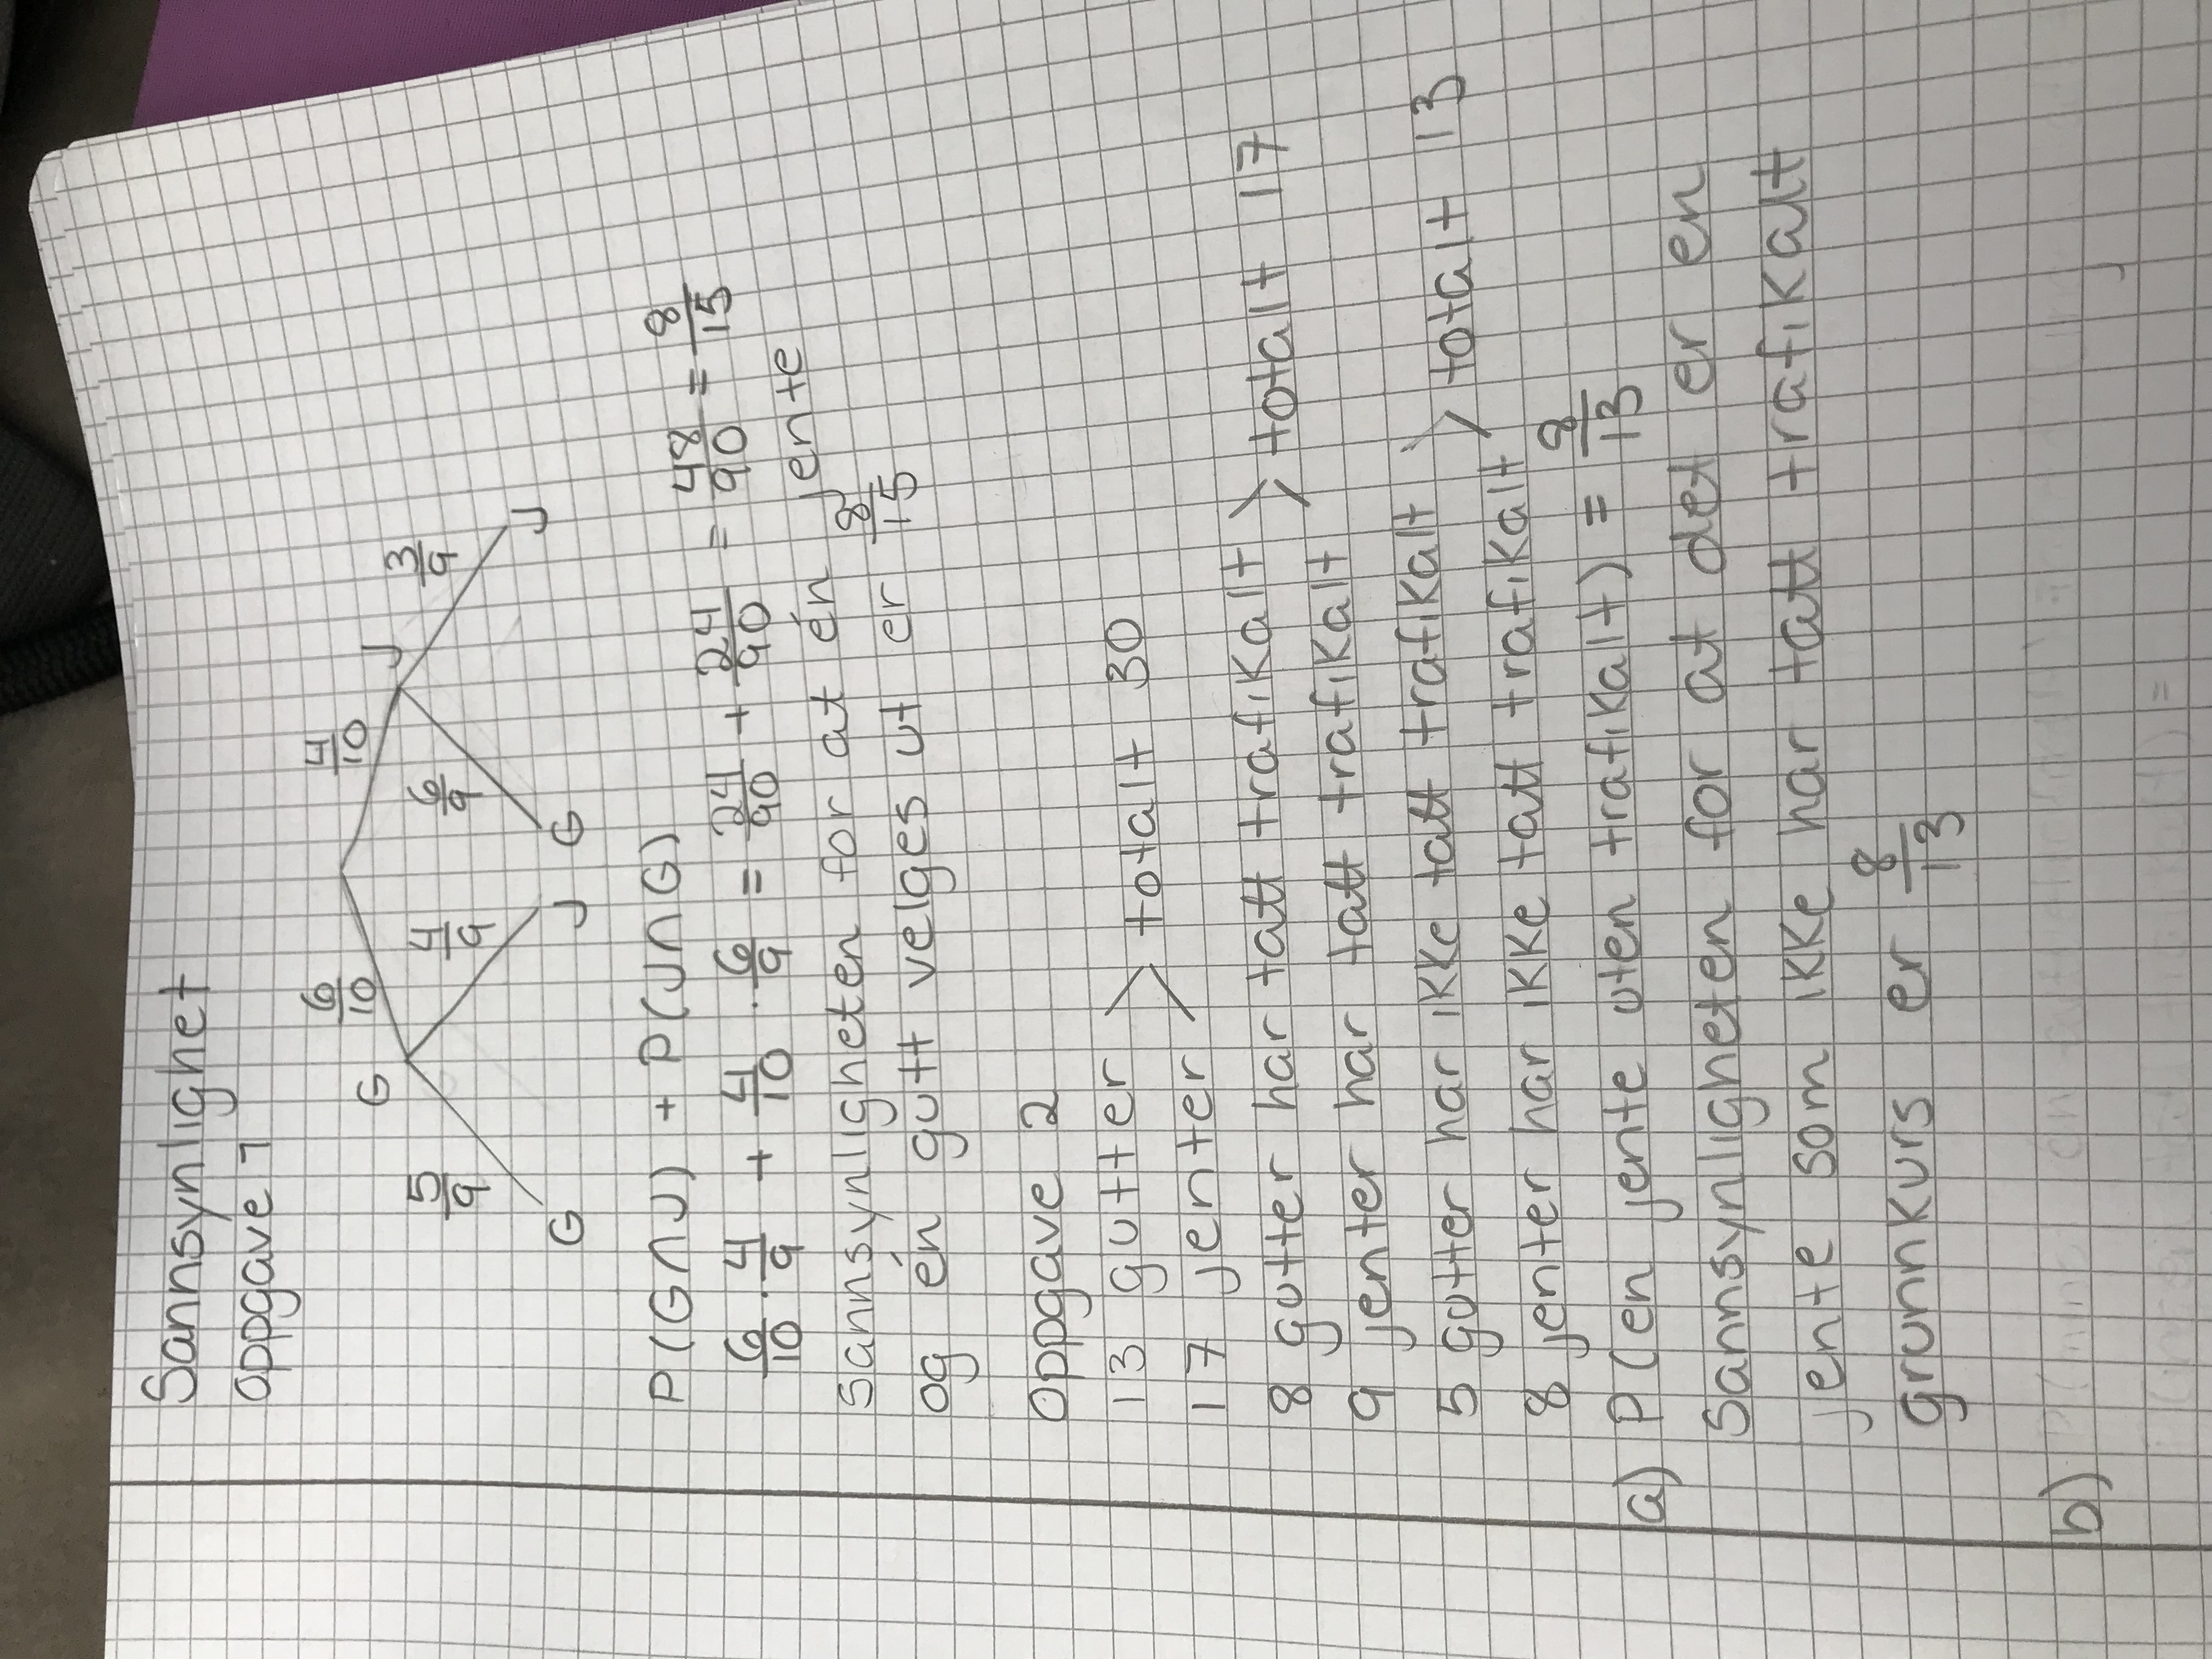 Sannsynlighet
oppgave 1
6/10 4/10
G J
5/9 4/9 6/9 3/9
G J G J
P(G∩J) + P(J∩G)
6/10 · 4/9 + 4/10 · 6/9 = 24/90 + 24/90 = 48/90 = 8/15
Sannsynligheten for at én jente
og én gutt velges ut er 8/15
oppgave 2
13 gutter > totalt 30
17 jenter
8 gutter har tatt trafikalt > totalt 17
9 jenter har tatt trafikalt
5 gutter har ikke tatt trafikalt > totalt 13
8 jenter har ikke tatt trafikalt
a) P(en jente uten trafikalt) = 8/13
Sannsynligheten for at det er en
jente som ikke har tatt trafikalt
grunnkurs er 8/13
b)